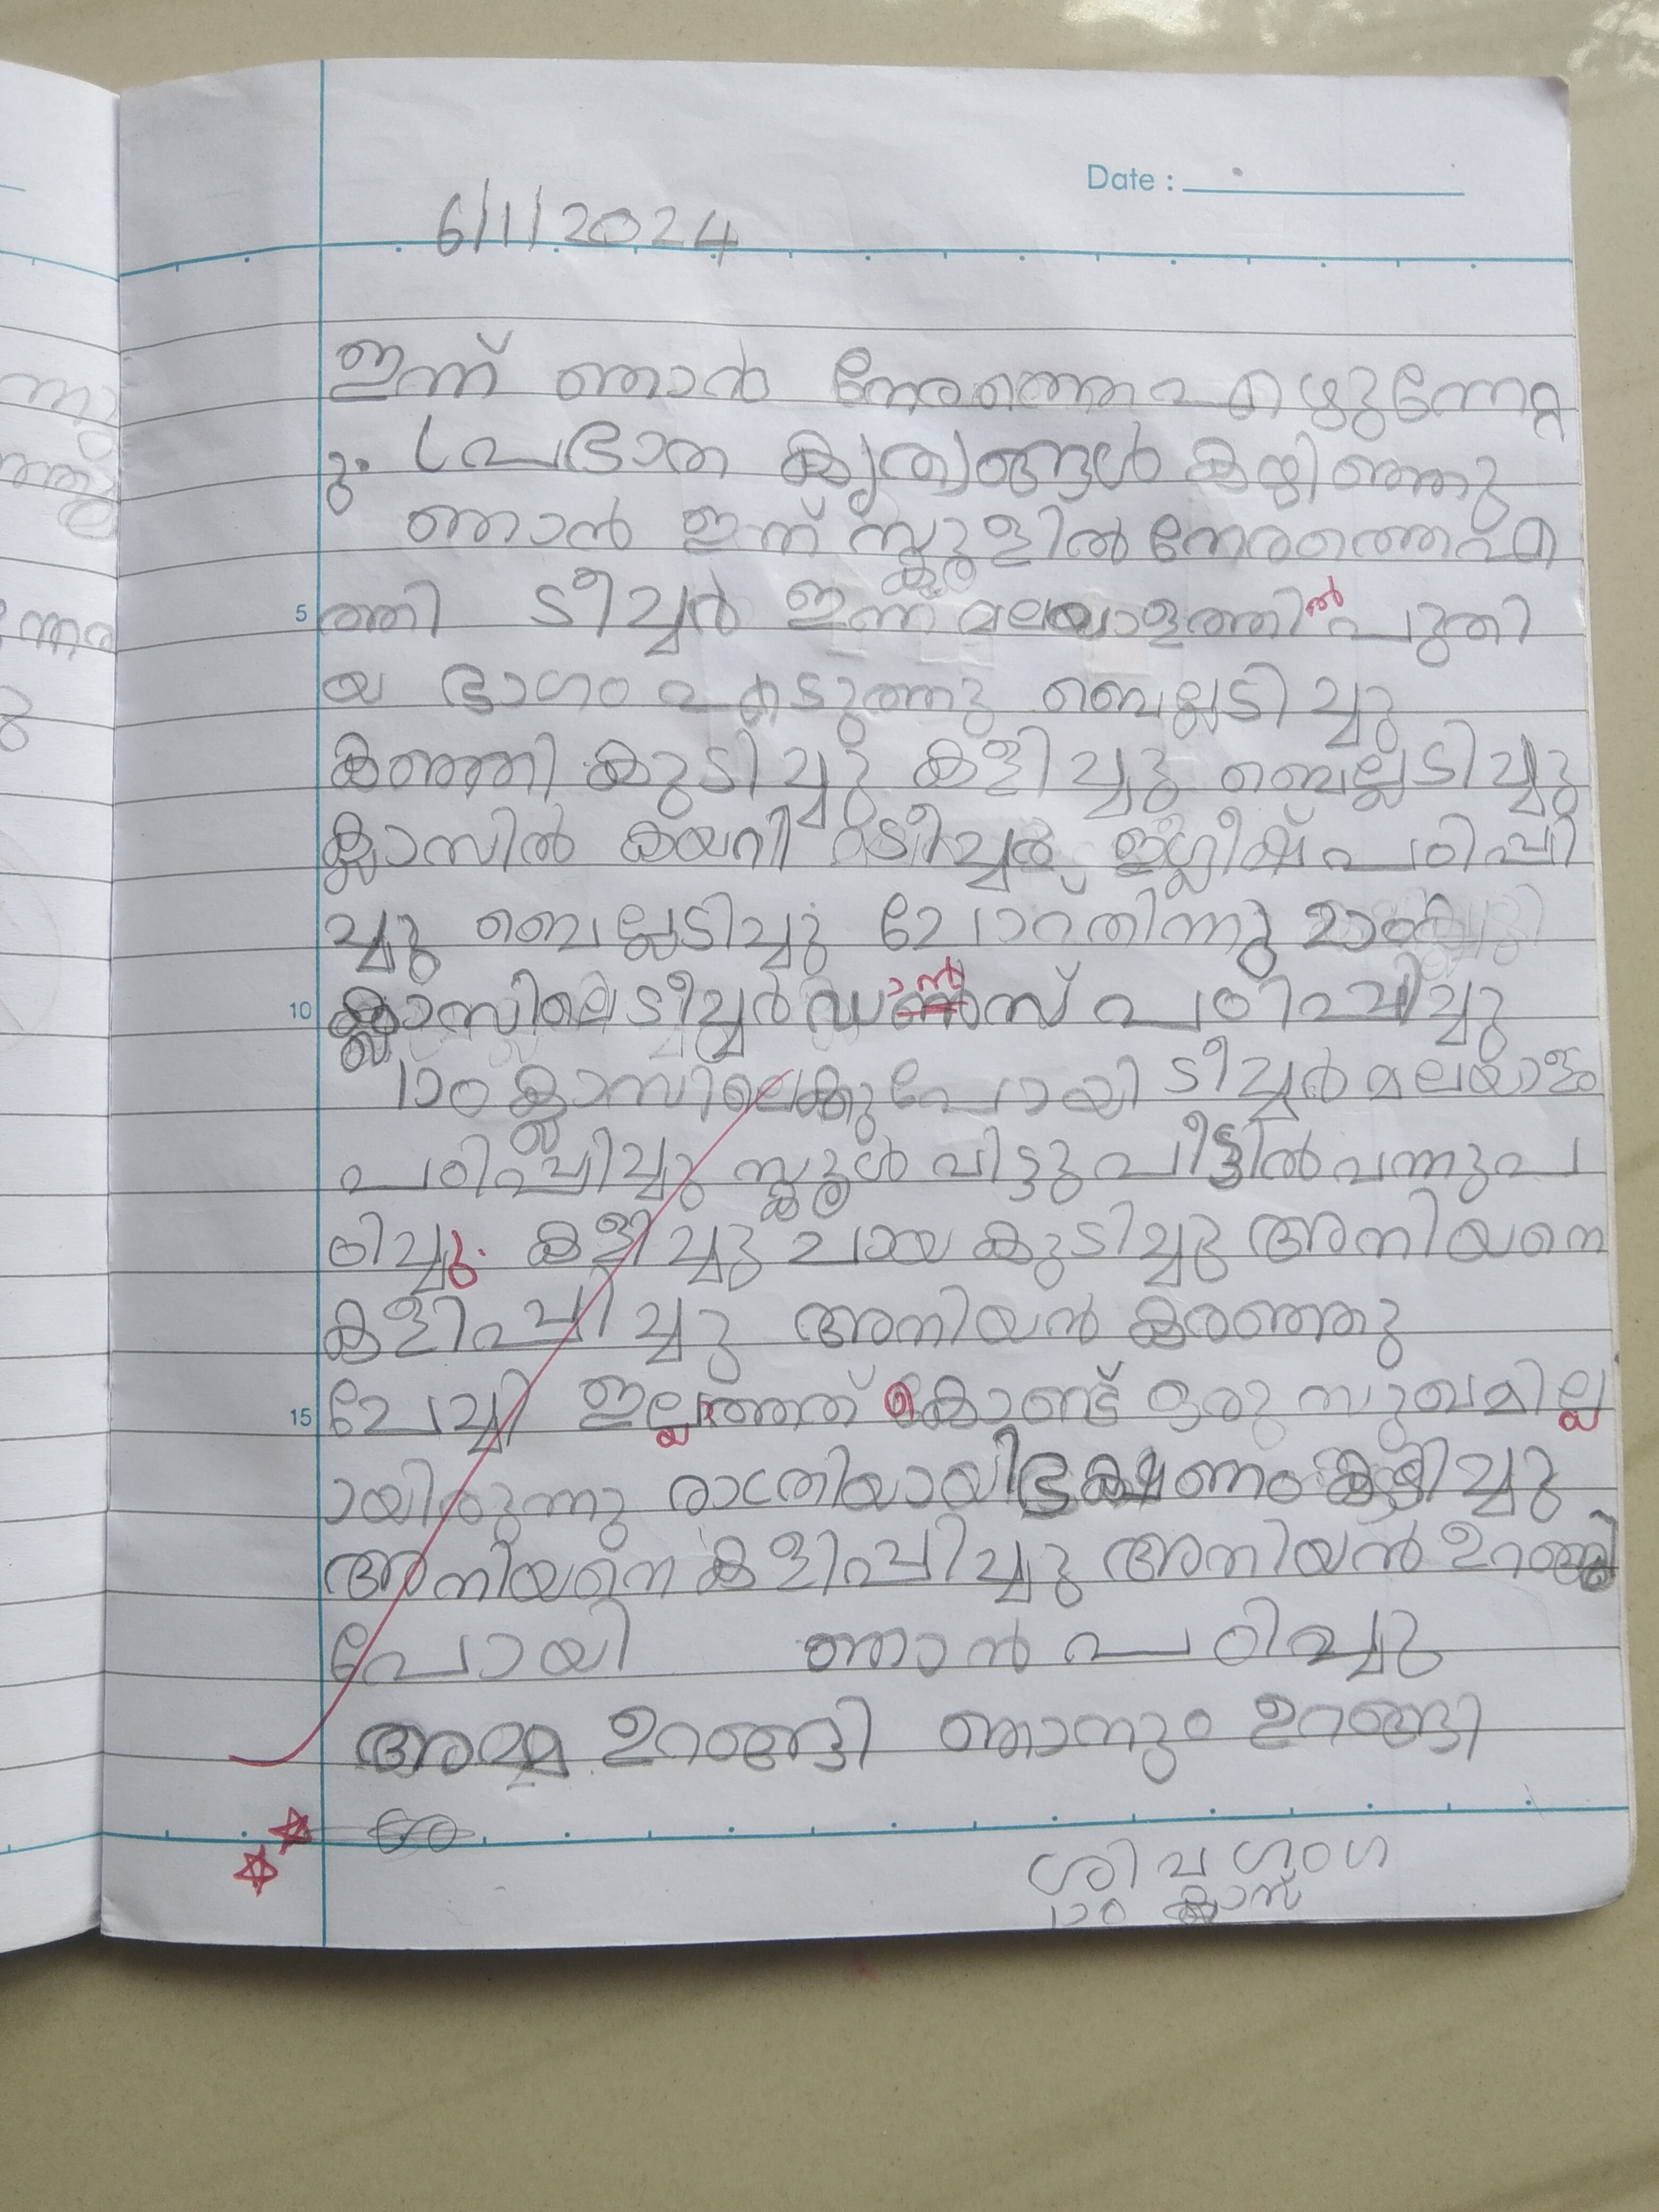 Date :
6/1/2024
ഇന്ന് ഞാൻ നേരത്തെ എഴുന്നേറ്റ
ു. പ്രഭാത കൃത്യങ്ങൾ കഴിഞ്ഞു
ഞാൻ ഇന്ന് സ്കൂളിൽ നേരത്തെ എ
5 ത്തി ടീച്ചർ ഇന്ന് മലയാളത്തിൽ പുതി
യ ഭാഗം എടുത്തു ബെല്ലടിച്ചു
കഞ്ഞി കുടിച്ചു കളിച്ചു ബെല്ലടിച്ചു
ക്ലാസിൽ കയറി ടീച്ചർ ഇംഗ്ലീഷ് പഠിപ്പി
ച്ചു ബെല്ലടിച്ചു ചോറ് തിന്നു
10 ക്ലാസ്സിലെ ടീച്ചർ ഡാൻസ് പഠിപ്പിച്ചു
1ാo ക്ലാസിലെക്കു പോയി ടീച്ചർ മലയാളം
പഠിപ്പിച്ചു സ്കൂൾ വിട്ടു വീട്ടിൽ വന്നു പ
ഠിച്ചു. കളിച്ചു ചായ കുടിച്ചു അനിയനെ
കളിപ്പിച്ചു അനിയൻ കരഞ്ഞു
15 ചേച്ചി ഇല്ലാത്തത് കൊണ്ട് ഒരു സുഖമില്ല
ായിരുന്നു രാത്രിയായി ഭക്ഷണം കഴിച്ചു
അനിയനെ കളിപ്പിച്ചു അനിയൻ ഉറങ്ങി
പോയി ഞാൻ പഠിച്ചു
അമ്മ ഉറങ്ങി ഞാനും ഉറങ്ങി
ശിവഗംഗ
1ാo ക്ലാസ്